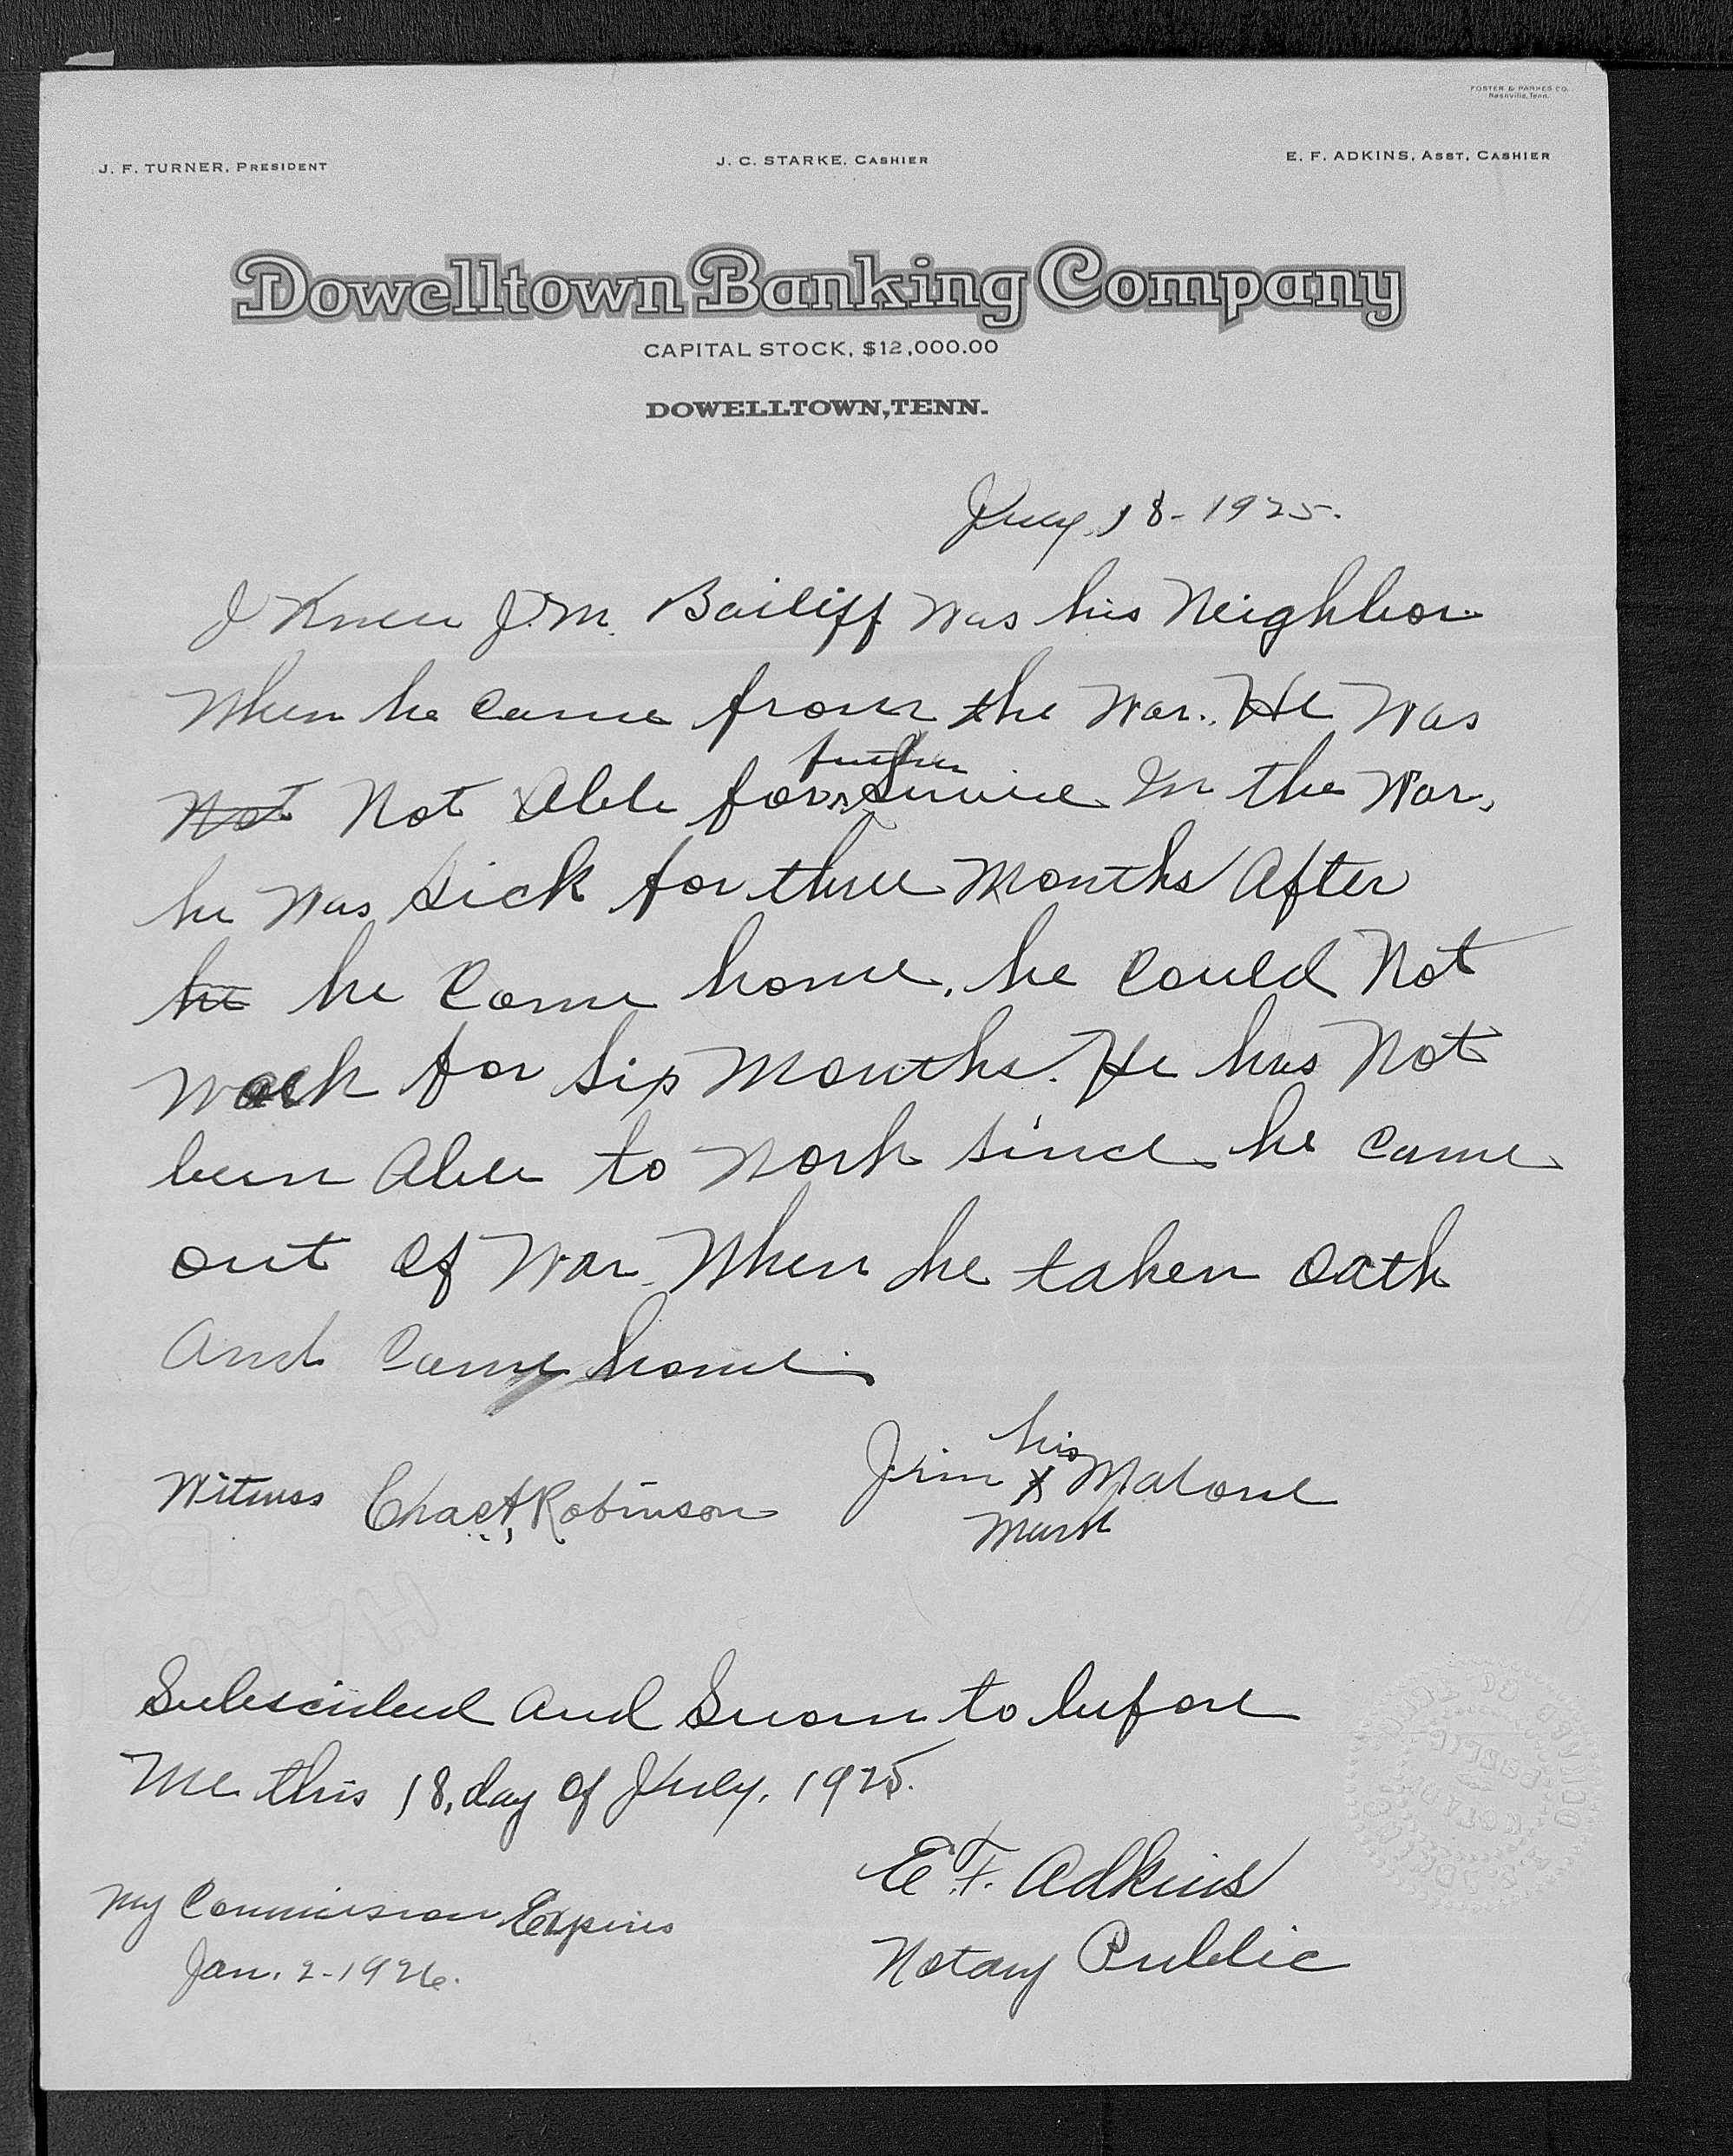 FOSTER & PARKES CO.
Nashville, Tenn.
J. F. TURNER, PRESIDENT J. C. STARKE, CASHIER E. F. ADKINS, ASST. CASHIER
Dowelltown Banking Company
CAPITAL STOCK, $12,000.00
DOWELLTOWN, TENN.
July, 18-1925.
I Knew J.M. Bailiff Was his Neighbor
When he came from the War. He Was
further
Not Not Able for Service In the War,
he Was Sick for three Months After
he he Come home, he Could Not
Work for Six Months. He has Not
been Able to Work Since he Came
out of War When he taken oath
And Came home.
his
Witness Chas A, Robinson Jim X Malone
Mark
Subscribed and Sworn to before
Me this 18, day of July, 1925.
E. F. Adkins
My Commission Expires
Notary Public
Jan. 2-1926.